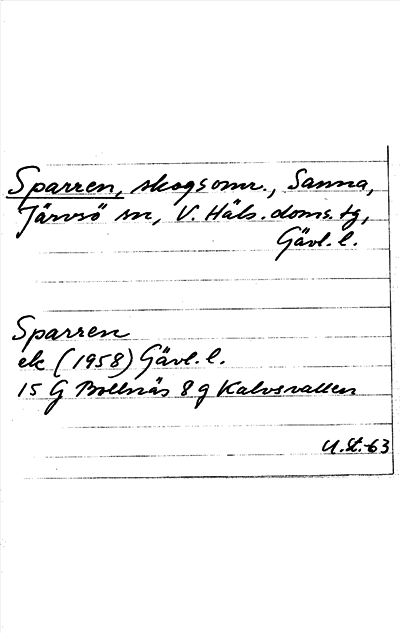 Sparren, skogsomr., Sanna,
Järvsö sn, V. Häls. doms. tg,
Gävl. l.
Sparren
ek (1958) Gävl. l.
15 G Bollnäs 8 g Kalvsvallen
U.St.-63